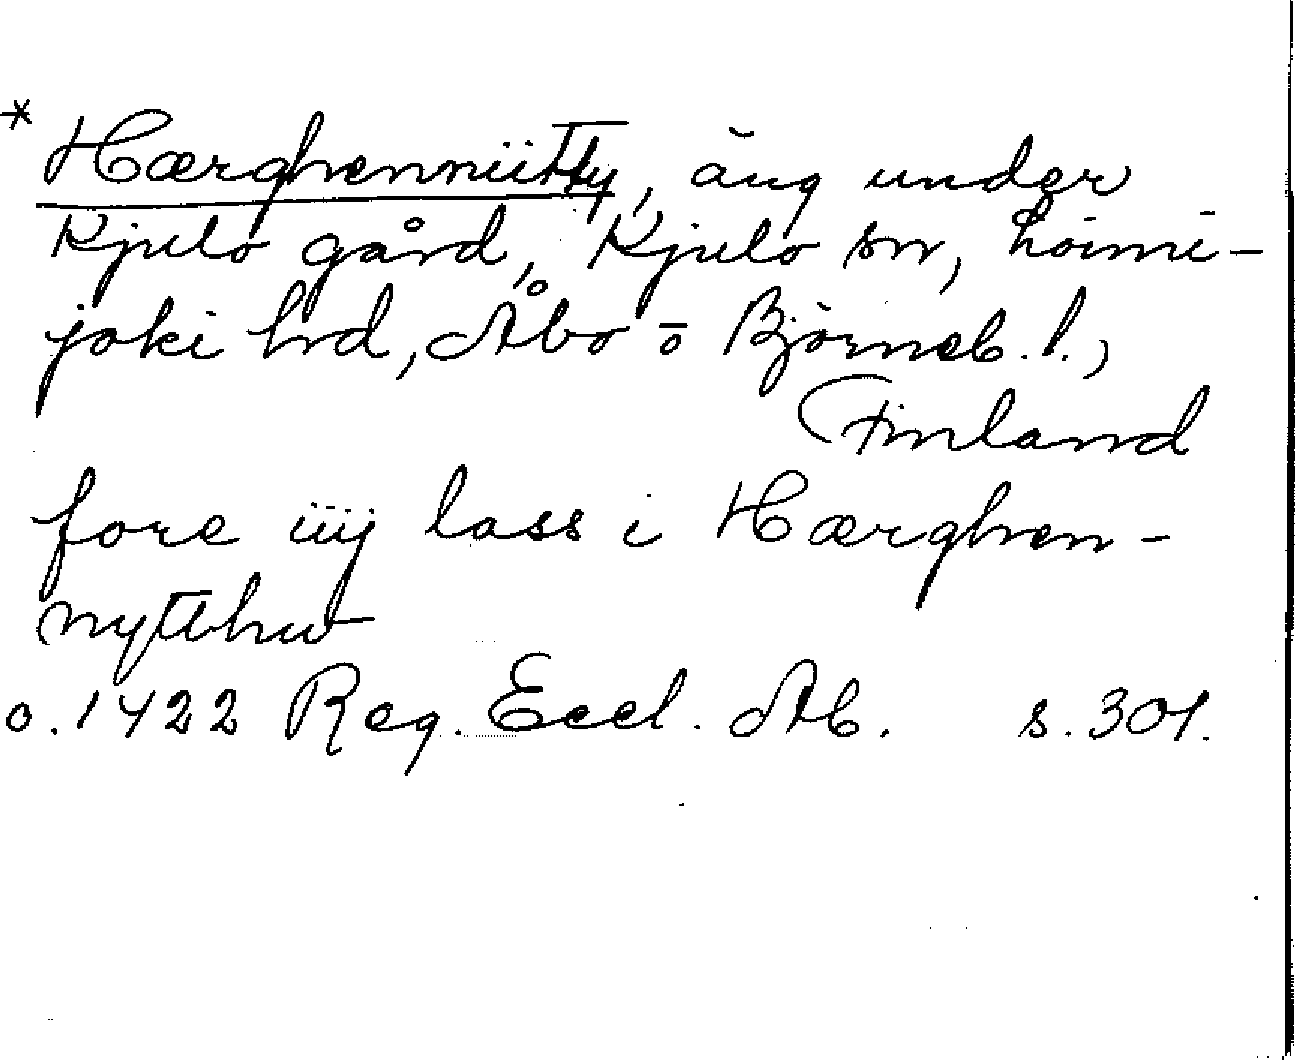 * Hærghenniitty, äng under
Kjulo gård, Kjulo sn, Loimi-
joki hd, Åbo o Björneb. l.,
Finland
fore iiij lass i Hærghen-
nytthw
o. 1422 Reg. Eccl. Ab. s. 301.